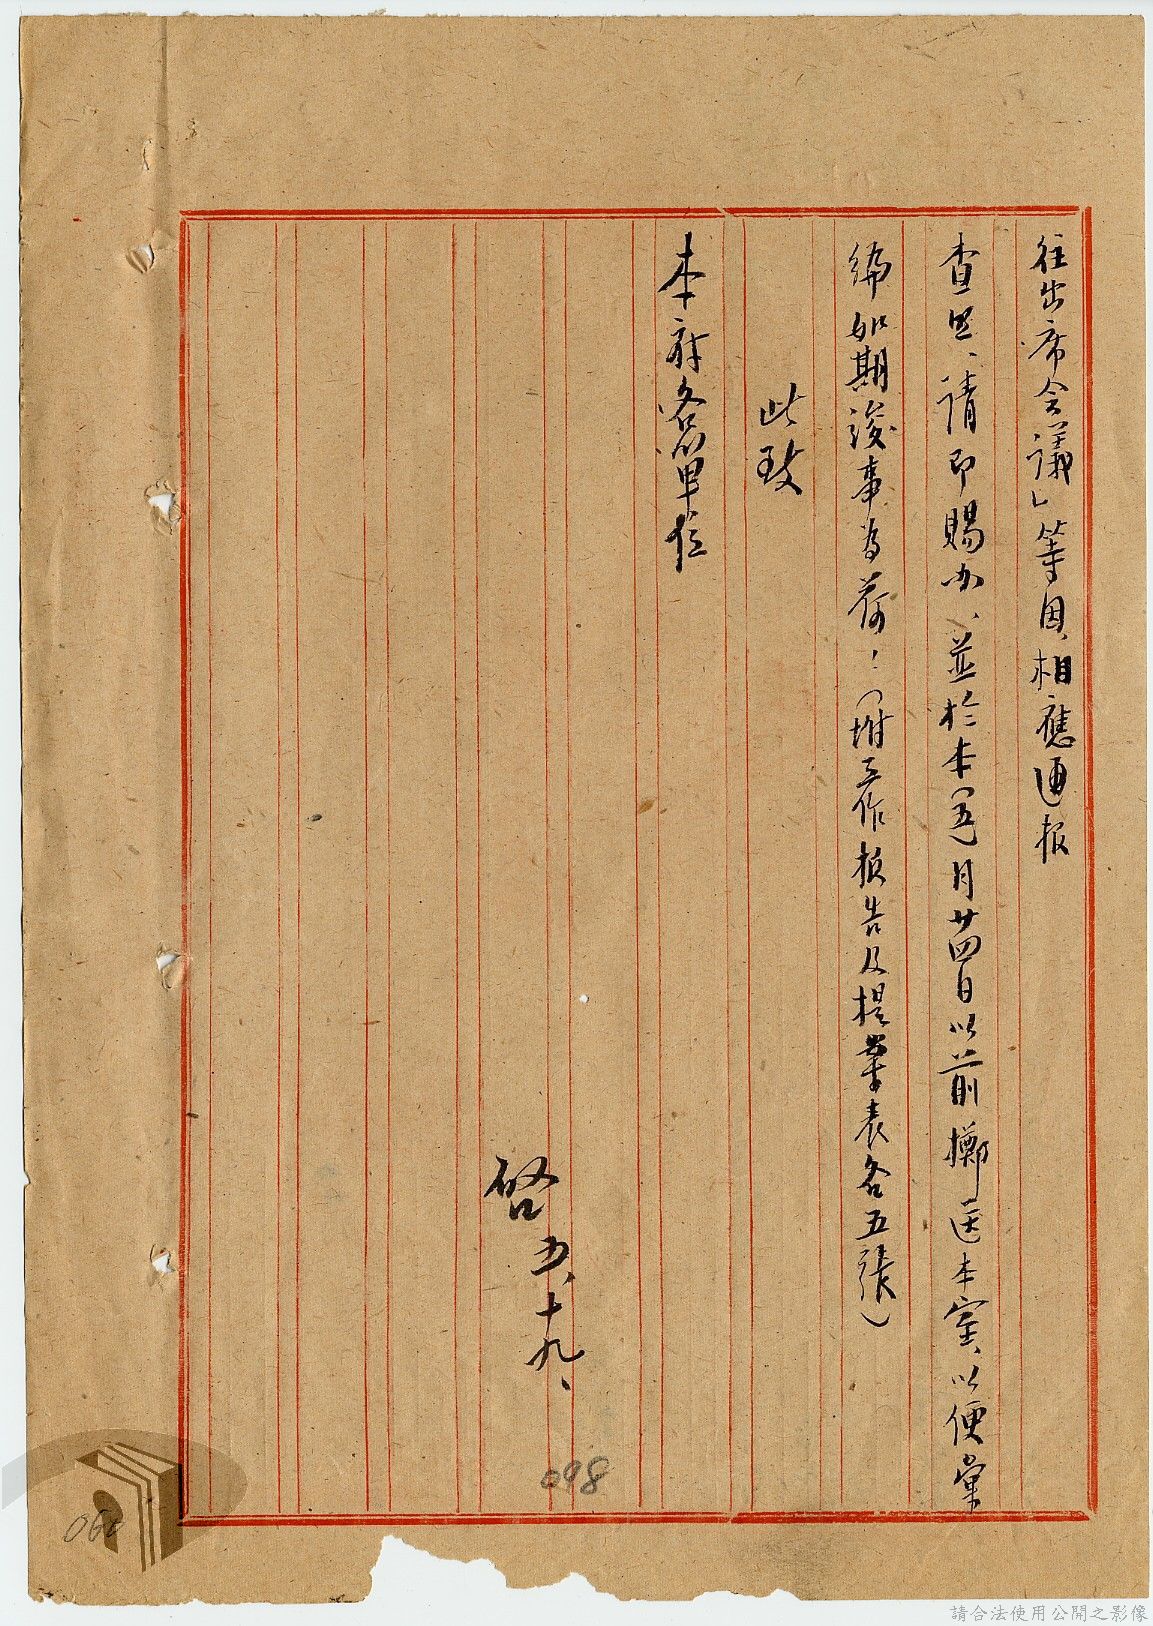 往出席会議」等因、相應通报
查照、請即賜办、並於本(五)月廿四日以前擲送本室、以便彙
编如期竣事為荷！（附工作报告及提案表各五張）
此致
本府各單位
啓 五、十九、
098
060
請合法使用公開之影像